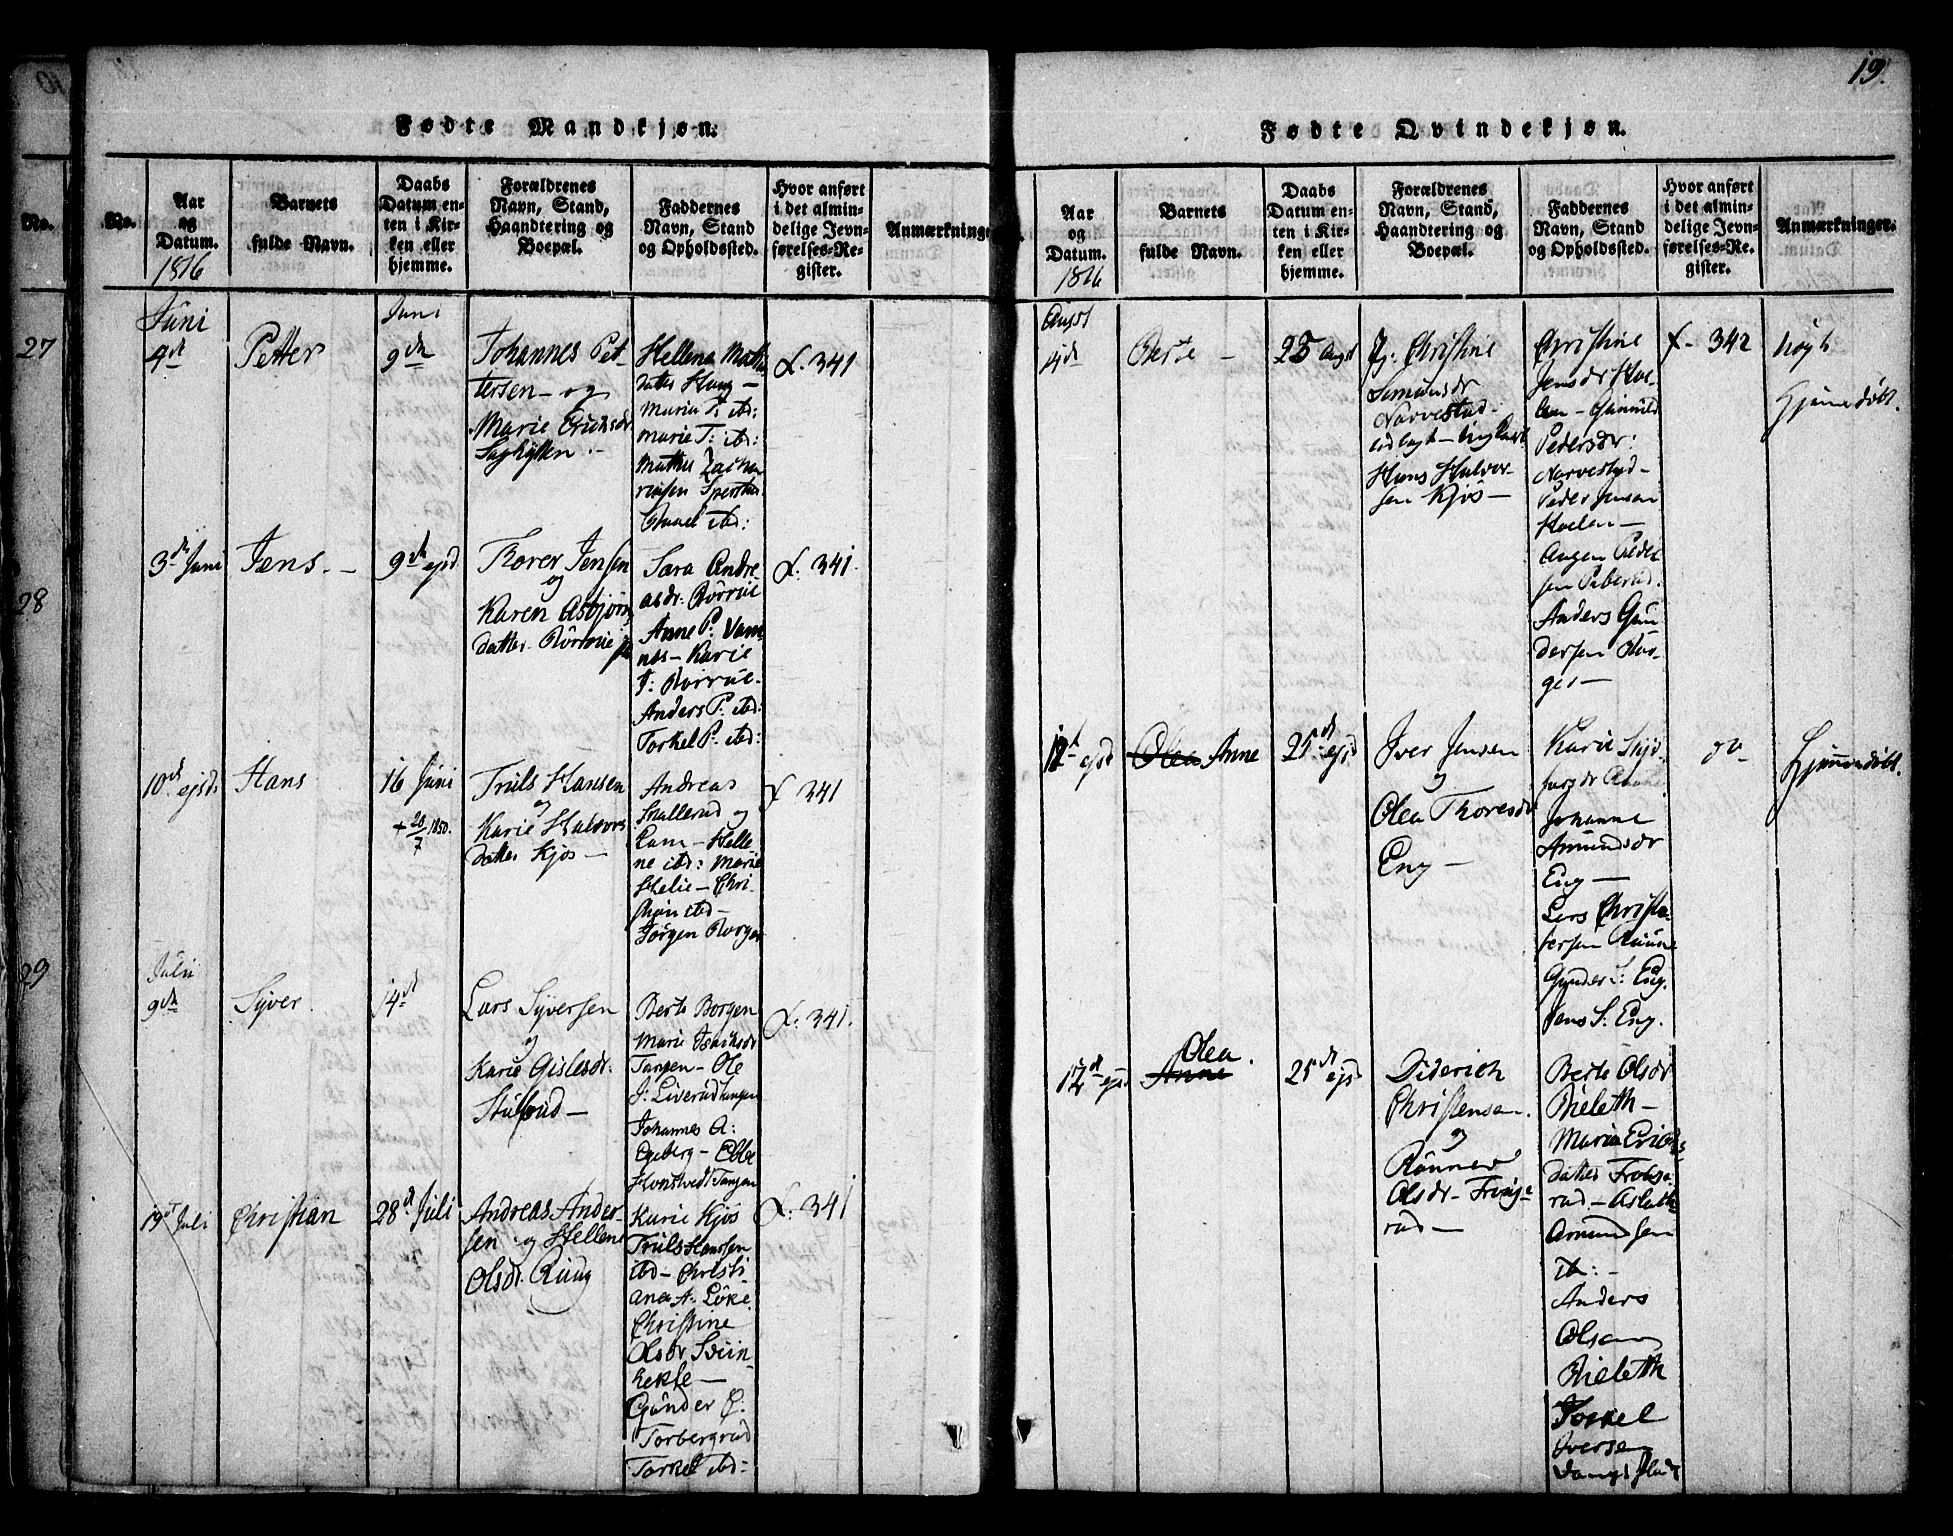 19.
Fødte Mandkjøn.
No.
No.
Aar og Datum. 1816
Barnets fulde Navn.
Daabs Datum enten i Kirken eller hjemme.
Forældrenes Navn, Stand, Haandtering og Boepæl.
Faddernes Navn, Stand og Opholdssted.
Hvor anført i det almindelige Jevnførelses-Register.
Anmærkninge
27
28
29
Juni
4de
Petter
Juni
9de
Johannes Pet
tersen - og
Marie Erichsdr
Hellena Math
datter Haug -
Maria T: ibd:
Marie T: ibd:
Mathis Zacha
riasen
ibd:
L. 341
3de Juni
Jens. -
9de ejsd
Torer Jensen
og
Karen Asbjörns
datter Rörvue
Sara Andre-
asdr: Rörrue
Anne P: Vam
næs - Karie
J: Rorrue.
Anders P. ibd:
Torkel P. ibd:
L. 341.
10de ejsd.
Hans
16 Juni
+ 28/7 1850.
Truls Hansen
og
Karie Halvors
datter Kjos -
Andreas
Skallerud og
Helle
ne ibd: Marie
Helie - Chri-
ibd -
Jörgen Rorge
L 341
Julii
9de
Syver.
14de
Lars Syversen
og
Karie Gislesdr.
Stubrud -
Berte Borgen
Marie Isacksdr
Tangen - Ole
J: Liverud Tangen
Johannes A:
Egeberg - Ebbe
Honstvedt Tangen
L: 341.
19de Juli
Christian
28de Juli
Andreas Ander-
sen og Hellene
Olsdr. Ruug
Karie Kjos
Truls Hansen
ibd - Christi
ana A. Löke
Christine
Olsdr Sviin
Gunder C:
Torbergrud
Torkel ibd:
L: 341
Fødte Qvindekjøn.
Aar og Datum. 1816
Barnets fulde Navn.
Daabs Datum enten i Kirken eller hjemme.
Forældrenes Navn, Stand, Haandtering og Boepæl.
Faddernes Navn, Stand og Opholdssted.
Hvor anført i det almindelige Jevnførelses-Register.
Anmærkninger.
Augst
Berte -
25 Augst
Pj. Christine
Simonsdr
Narvestad.
udlagt - Ungkarl
Hans Halvor-
sen Kjös -
Christine
Jensdr Hoe-
len - Gunnild
Pedersdr:
Narvestad -
Peder Jensen
Hoelen -
Anders Gun
dersen
L - 342
hjemmedöbt.
12te ejsd
Olea Anne
25de ejsd
Iver Jensen
og
Olea Thoresdr
Eng -
Karie
Johanne
Amundsdr
Eng -
Lars Christo-
fersen
Gunder S: Eng.
Jens S: Eng.
do
Hjemmedöbt.
12de ejsd
Olea.
Anne
25de ejsd
Diderich
Christensen.
og
Rönnev
Olsdr -
rud -
Berte Olsdr
Bieleth -
Maria Erichs
datter
rud - Aslak
Amundsen
ib: -
Anders
Olsen
Bieleth
Torkel
Iversen